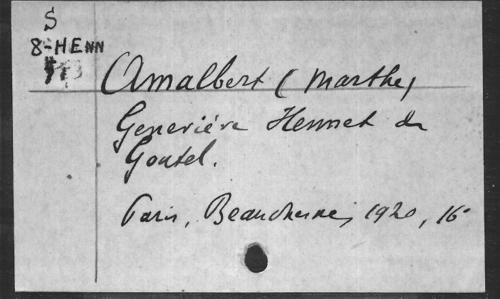 S
8-HENN
Amalbert (Marthe)
Geneviève Hennet de
Goutel.
Paris, Beauchesne, 1920, 16°